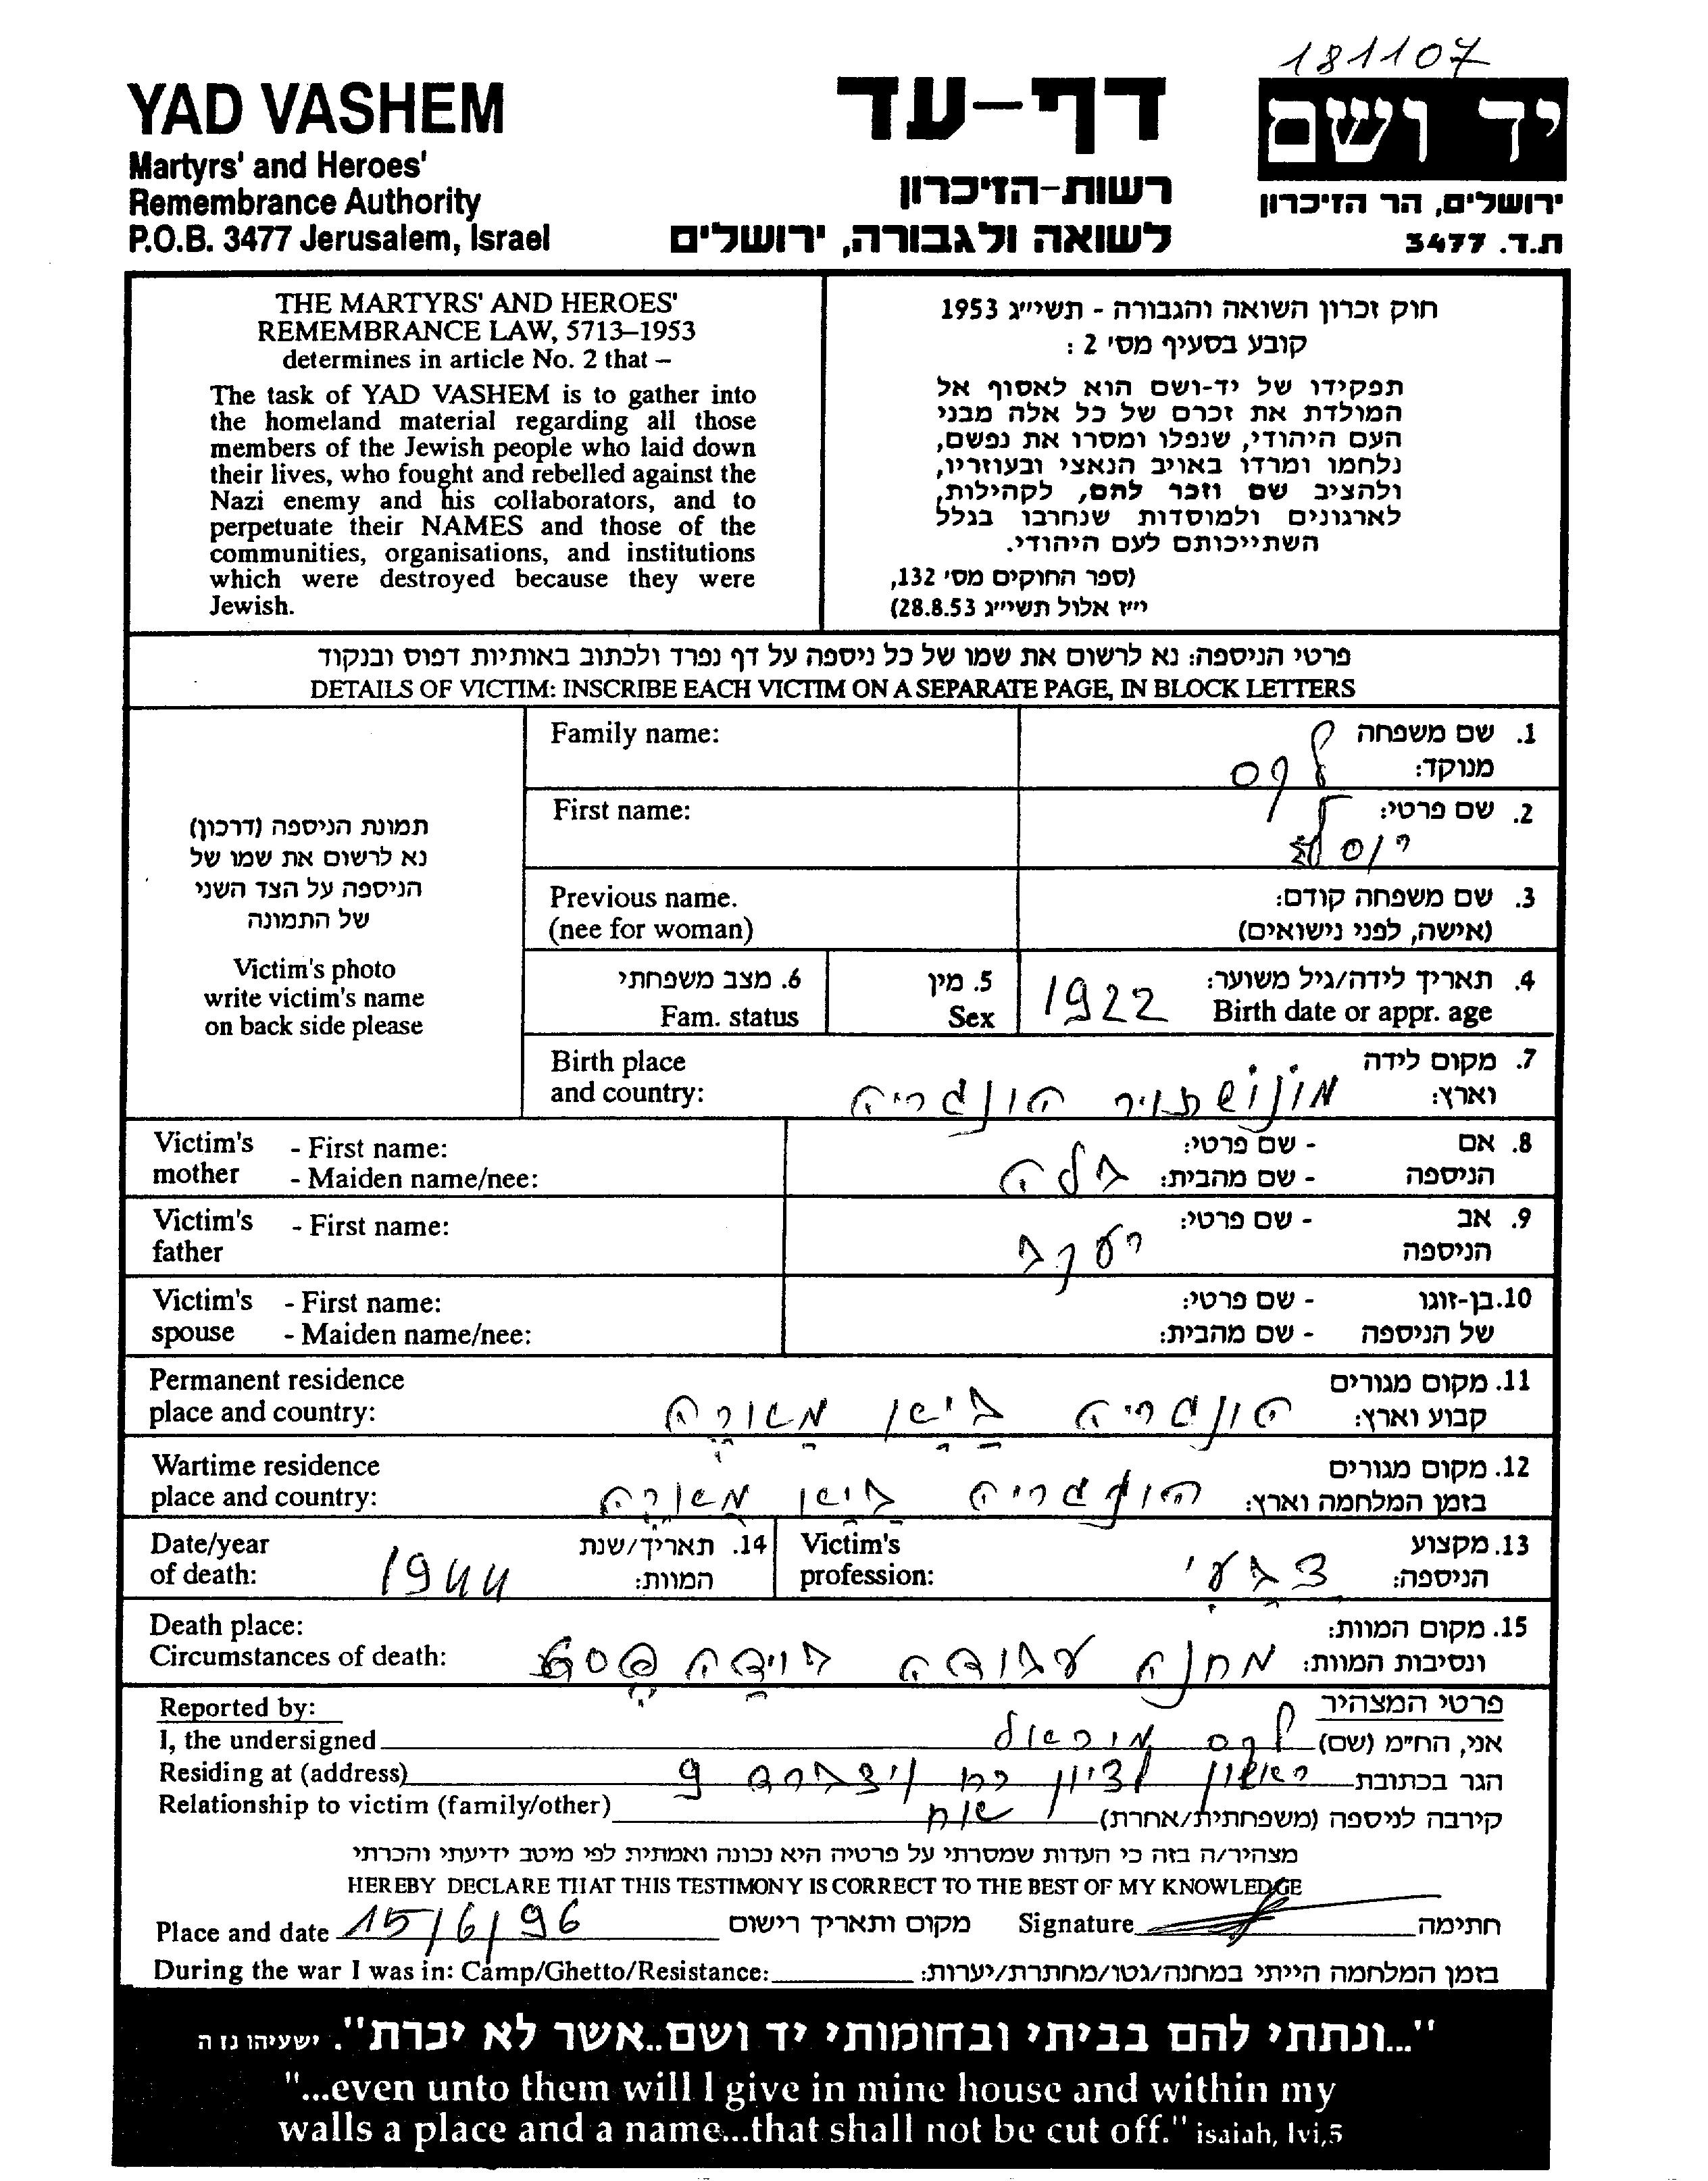 181107
YAD VASHEM
Martyrs' and Heroes'
Remembrance Authority
P.O.B. 3477 Jerusalem, Israel
דף-עד
רשות-הזיכרון
לשואה ולגבורה, ירושלים
יד ושם
ירושלים, הר הזיכרון
ת.ד. 3477
THE MARTYRS' AND HEROES'
REMEMBRANCE LAW, 5713–1953
determines in article No. 2 that –
The task of YAD VASHEM is to gather into
the homeland material regarding all those
members of the Jewish people who laid down
their lives, who fought and rebelled against the
Nazi enemy and his collaborators, and to
perpetuate their NAMES and those of the
communities, organisations, and institutions
which were destroyed because they were
Jewish.
חוק זכרון השואה והגבורה - תשי״ג 1953
קובע בסעיף מס' 2 :
תפקידו של יד-ושם הוא לאסוף אל
המולדת את זכרם של כל אלה מבני
העם היהודי, שנפלו ומסרו את נפשם,
נלחמו ומרדו באויב הנאצי ובעוזריו,
ולהציב שם וזכר להם, לקהילות,
לארגונים ולמוסדות שנחרבו בגלל
השתייכותם לעם היהודי.
(ספר החוקים מס' 132,
י״ז אלול תשי״ג 28.8.53)
פרטי הניספה: נא לרשום את שמו של כל ניספה על דף נפרד ולכתוב באותיות דפוס ובנקוד
DETAILS OF VICTIM: INSCRIBE EACH VICTIM ON A SEPARATE PAGE, IN BLOCK LETTERS
תמונת הניספה (דרכון)
נא לרשום את שמו של
הניספה על הצד השני
של התמונה
Victim's photo
write victim's name
on back side please
1. שם משפחה
מנוקד:
Family name:
2. שם פרטי:
First name:
3. שם משפחה קודם:
(אישה, לפני נישואים)
Previous name.
(nee for woman)
4. תאריך לידה/גיל משוער:
Birth date or appr. age
1922
5. מין
Sex
6. מצב משפחתי
Fam. status
7. מקום לידה
וארץ:
הונגריה
Birth place
and country:
8. אם
הניספה
- שם פרטי:
- שם מהבית:
בלה
Victim's mother
- First name:
- Maiden name/nee:
9. אב
הניספה
- שם פרטי:
יעקב
Victim's father
- First name:
10. בן-זוגו
של הניספה
- שם פרטי:
- שם מהבית:
Victim's spouse
- First name:
- Maiden name/nee:
11. מקום מגורים
קבוע וארץ:
הונגריה
Permanent residence
place and country:
12. מקום מגורים
בזמן המלחמה וארץ:
הונגריה
Wartime residence
place and country:
13. מקצוע
הניספה:
צבעי
Victim's
profession:
14. תאריך/שנת
המוות:
1944
Date/year
of death:
15. מקום המוות:
ונסיבות המוות:
מחנה עבודה
Death place:
Circumstances of death:
פרטי המצהיר
Reported by:
אני, החי״מ (שם) מיכאל
I, the undersigned
הגר בכתובת ראשון לציון 9
Residing at (address)
קירבה לניספה (משפחתית/אחרת) אח
Relationship to victim (family/other)
מצהיר/ה בזה כי העדות שמסרתי על פרטיה היא נכונה ואמתית לפי מיטב ידיעתי והכרתי
HEREBY DECLARE THAT THIS TESTIMONY IS CORRECT TO THE BEST OF MY KNOWLEDGE
Place and date 15/6/96 מקום ותאריך רישום Signature חתימה
During the war I was in: Camp/Ghetto/Resistance: בזמן המלחמה הייתי במחנה/גטו/מחתרת/יערות:
"...ונתתי להם בביתי ובחומותי יד ושם..אשר לא יכרת". ישעיהו נו ה
"...even unto them will I give in mine house and within my
walls a place and a name...that shall not be cut off." isaiah, lvi,5